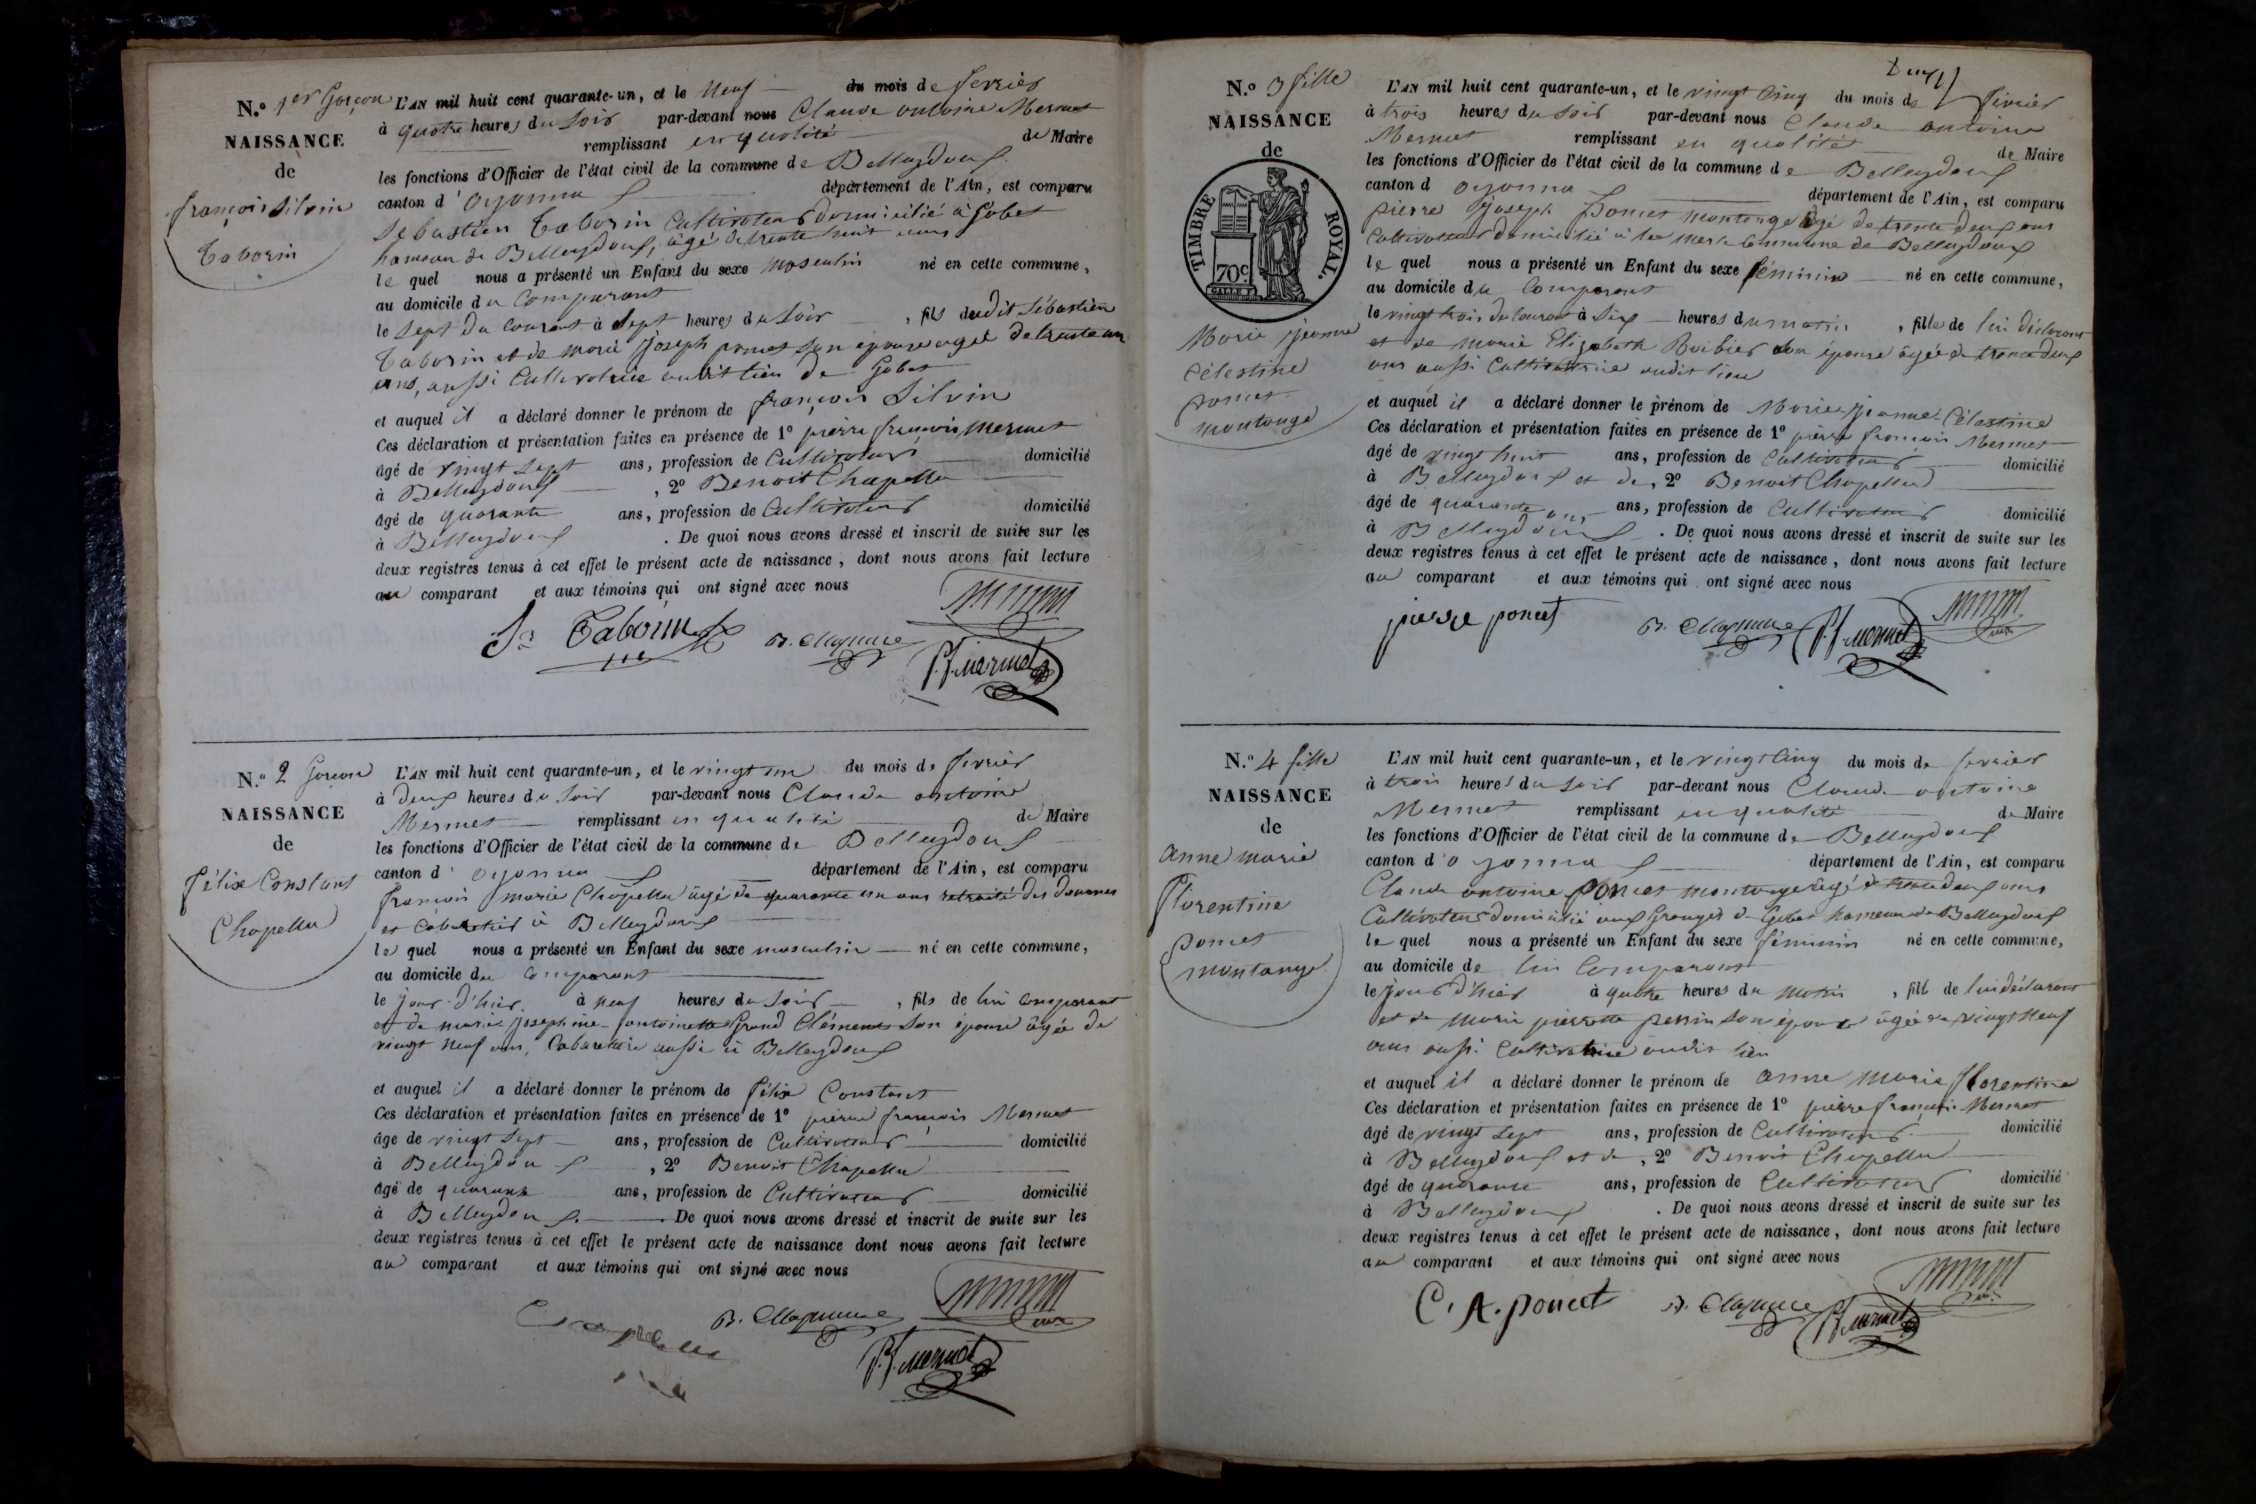 N.º 1er Garçon
NAISSANCE
de
françois Silvin
Taborin
L'AN mil huit cent quarante-un, et le neuf du mois de fevrier
à quatre heures du soir par-devant nous Claude antoine Mermet
remplissant en qualité de Maire
les fonctions d'Officier de l'état civil de la commune de Belleydoux
canton d'oyonna département de l'Ain, est comparu
Sébastien Taborin Cultivateur domicilié à Gobet
hameau de Belleydoux, âgé de trente huit ans
le quel nous a présenté un Enfant du sexe masculin né en cette commune,
au domicile du Comparant
le sept du Courant à sept heures du soir, fils dudit Sébastien
Taborin et de marie joseph poncet son épouse agée de trente un
ans, aussi Cultivatrice audit lieu de Gobet
et auquel il a déclaré donner le prénom de françois Silvin
Ces déclaration et présentation faites en présence de 1º pierre françois Mermet
âgé de vingt sept ans, profession de Cultivateur domicilié
à Belleydoux, 2º Benoit Chapellu
âgé de quarante ans, profession de Cultivateur domicilié
à Belleydoux. De quoi nous avons dressé et inscrit de suite sur les
deux registres tenus à cet effet le présent acte de naissance, dont nous avons fait lecture
au comparant et aux témoins qui ont signé avec nous
Taborin
P. f. mermet
N.º 2 Garçon
NAISSANCE
de
félix Constant
Chapellu
L'AN mil huit cent quarante-un, et le vingt un du mois de fevrier
à deux heures du soir par-devant nous Claude antoine
Mermet remplissant en qualité de Maire
les fonctions d'Officier de l'état civil de la commune de Belleydoux
canton d' oyonna département de l'Ain, est comparu
françois marie Chapellu âgé de quarante un ans retraité des douanes
et Cabaretier à Belleydoux
le quel nous a présenté un Enfant du sexe masculin né en cette commune,
au domicile du comparant
le jour d'hier à neuf heures du soir, fils de lui comparant
et de marie josephine antoinette Grand Clément son épouse âgée de
vingt neuf ans, Cabaretière aussi à Belleydoux
et auquel il a déclaré donner le prénom de félix Constant
Ces déclaration et présentation faites en présence de 1º pierre françois Mermet
âgé de vingt sept ans, profession de Cultivateur domicilié
à Belleydoux, 2º Benoit Chapellu
âgé de quarante ans, profession de Cultivateur domicilié
à Belleydoux. De quoi nous avons dressé et inscrit de suite sur les
deux registres tenus à cet effet le présent acte de naissance dont nous avons fait lecture
au comparant et aux témoins qui ont signé avec nous
P. f. mermet
N.º 3 fille
NAISSANCE
de
TIMBRE ROYAL.
70c
Marie jeanne
Célestine
poncet
montange
L'AN mil huit cent quarante-un, et le vingt cinq du mois de février
à trois heures du soir par-devant nous Claude antoine
Mermet remplissant en qualité de Maire
les fonctions d'Officier de l'état civil de la commune de Belleydoux
canton d oyonna département de l'Ain, est comparu
pierre joseph poncet montange âgé de trente deux ans
Cultivateur domicilié à commune de Belleydoux
le quel nous a présenté un Enfant du sexe féminin né en cette commune,
au domicile du Comparant
le vingt trois du courant à six heures du matin, fille de lui déclarant
et de marie Elizabeth Barbier son épouse âgée de trente deux
ans aussi Cultivatrice audit lieu
et auquel il a déclaré donner le prénom de Marie jeanne Célestine
Ces déclaration et présentation faites en présence de 1º pierre françois Mermet
âgé de vingt huit ans, profession de Cultivateur domicilié
à Belleydoux et de, 2º Benoit Chapellu
âgé de quarante ans ans, profession de Cultivateur domicilié
à Belleydoux. De quoi nous avons dressé et inscrit de suite sur les
deux registres tenus à cet effet le présent acte de naissance, dont nous avons fait lecture
au comparant et aux témoins qui ont signé avec nous
pierre poncet
P. f. mermet
N.º 4 fille
NAISSANCE
de
anne marie
florentine
poncet
montange
L'AN mil huit cent quarante-un, et le vingt cinq du mois de fevrier
à trois heures du soir par-devant nous Claude antoine
Mermet remplissant en qualité de Maire
les fonctions d'Officier de l'état civil de la commune de Belleydoux
canton d'oyonna département de l'Ain, est comparu
Claude antoine poncet montange âgé de trente deux ans
Cultivateur domicilié aux Granges de Gobet hameau de Belleydoux
le quel nous a présenté un Enfant du sexe féminin né en cette commune,
au domicile de lui Comparant
le jour d'hier à quatre heures du matin, fille de lui déclarant
et de marie pierrette perrin son épouse âgée de vingt neuf
ans aussi Cultivatrice audit lieu
et auquel il a déclaré donner le prénom de anne marie florentine
Ces déclaration et présentation faites en présence de 1º pierre françois Mermet
âgé de vingt sept ans, profession de Cultivateur domicilié
à Belleydoux et de, 2º Benoit Chapellu
âgé de quarante ans, profession de Cultivateur domicilié
à Belleydoux. De quoi nous avons dressé et inscrit de suite sur les
deux registres tenus à cet effet le présent acte de naissance, dont nous avons fait lecture
au comparant et aux témoins qui ont signé avec nous
C. A. poncet
P. f. mermet